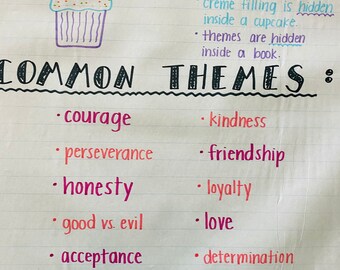 creme filling is hidden
inside a cupcake.
• themes are hidden
inside a book.
COMMON THEMES:
• courage
• perseverance
• honesty
• good vs. evil
• acceptance
• kindness
• friendship
• loyalty
• love
• determination